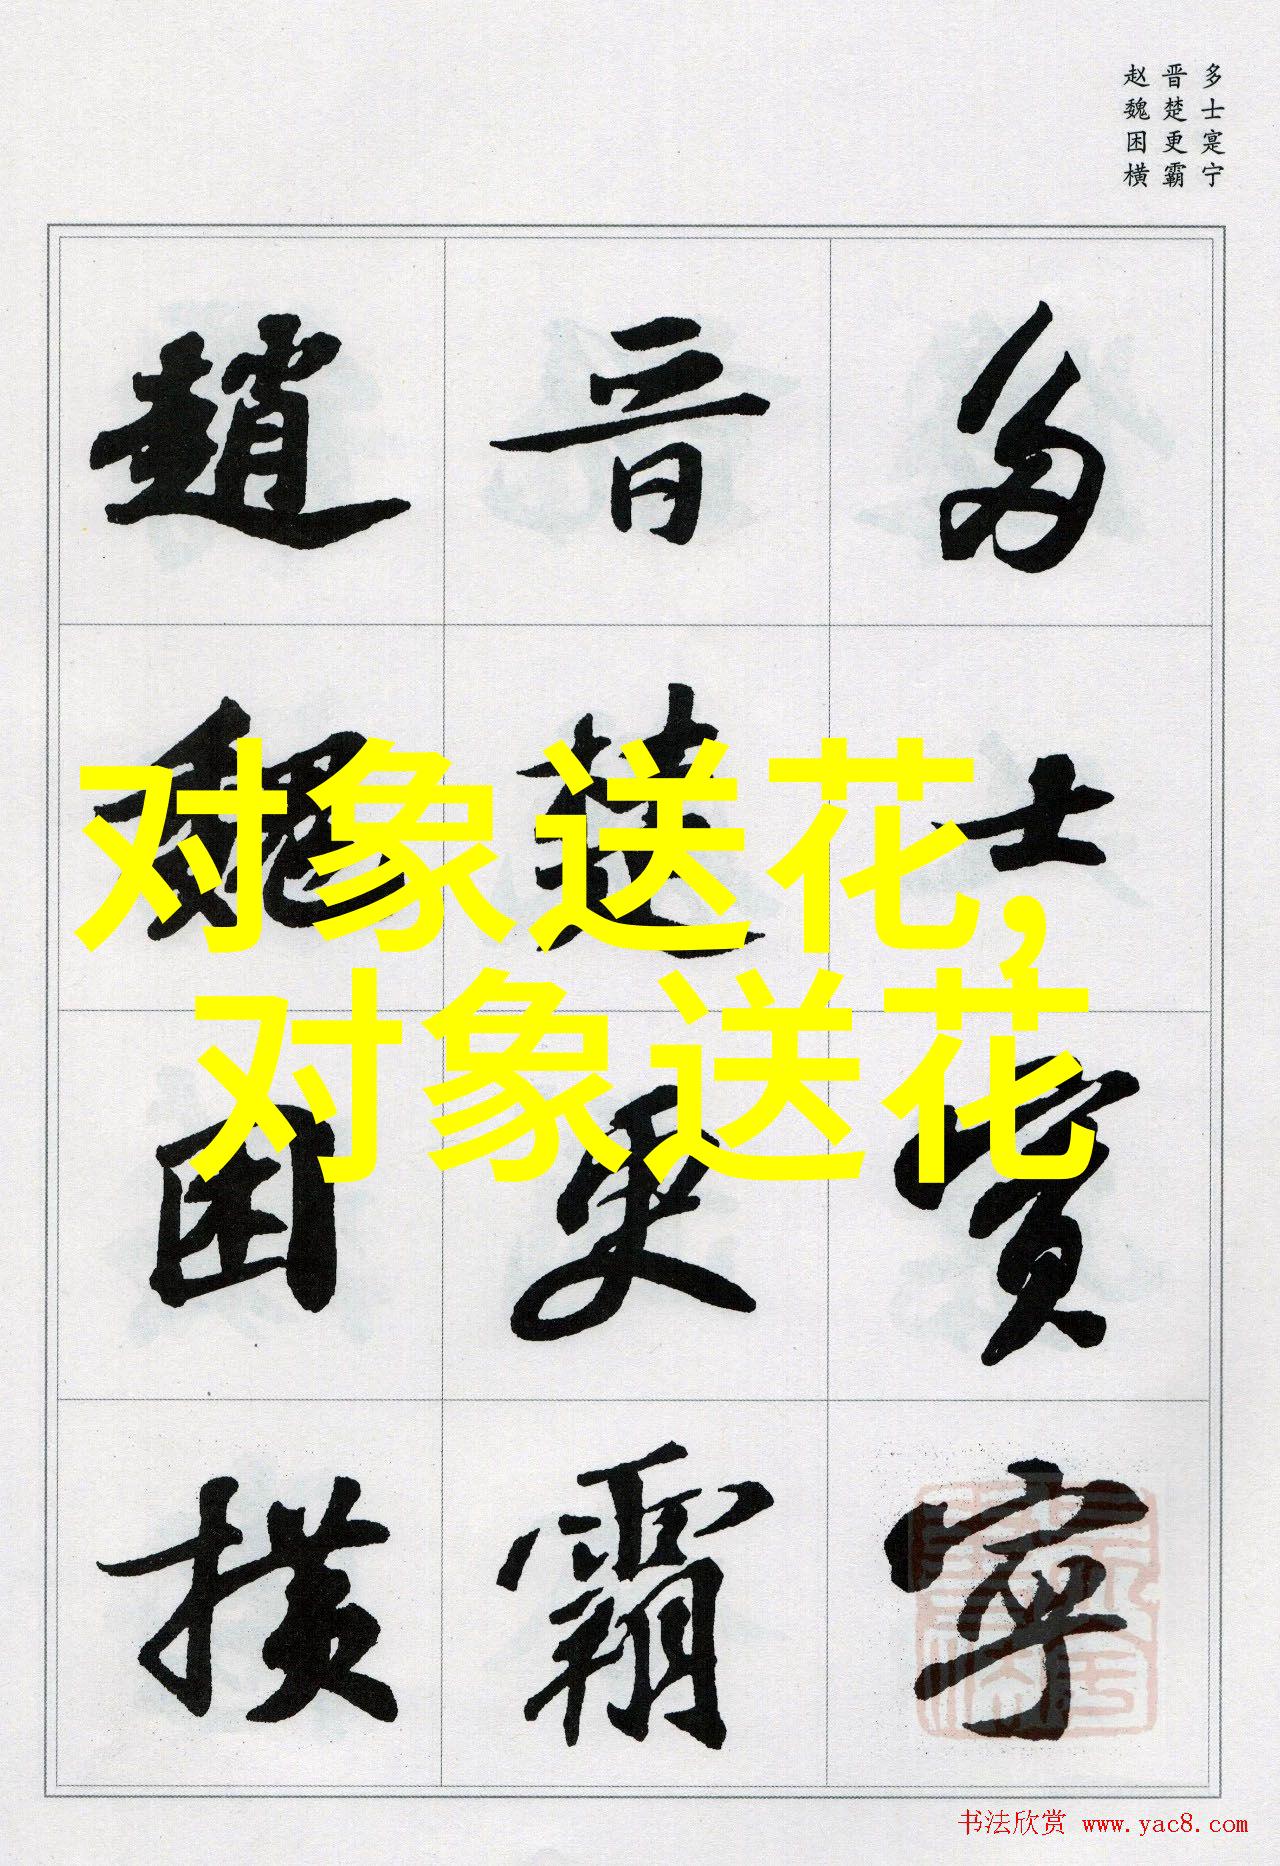 多士寔宁
晋楚更霸
赵魏困横
多士寔寧
晋楚更霸
趙魏困横
对象送花,
对象送花
书法欣赏 www.yac8.com